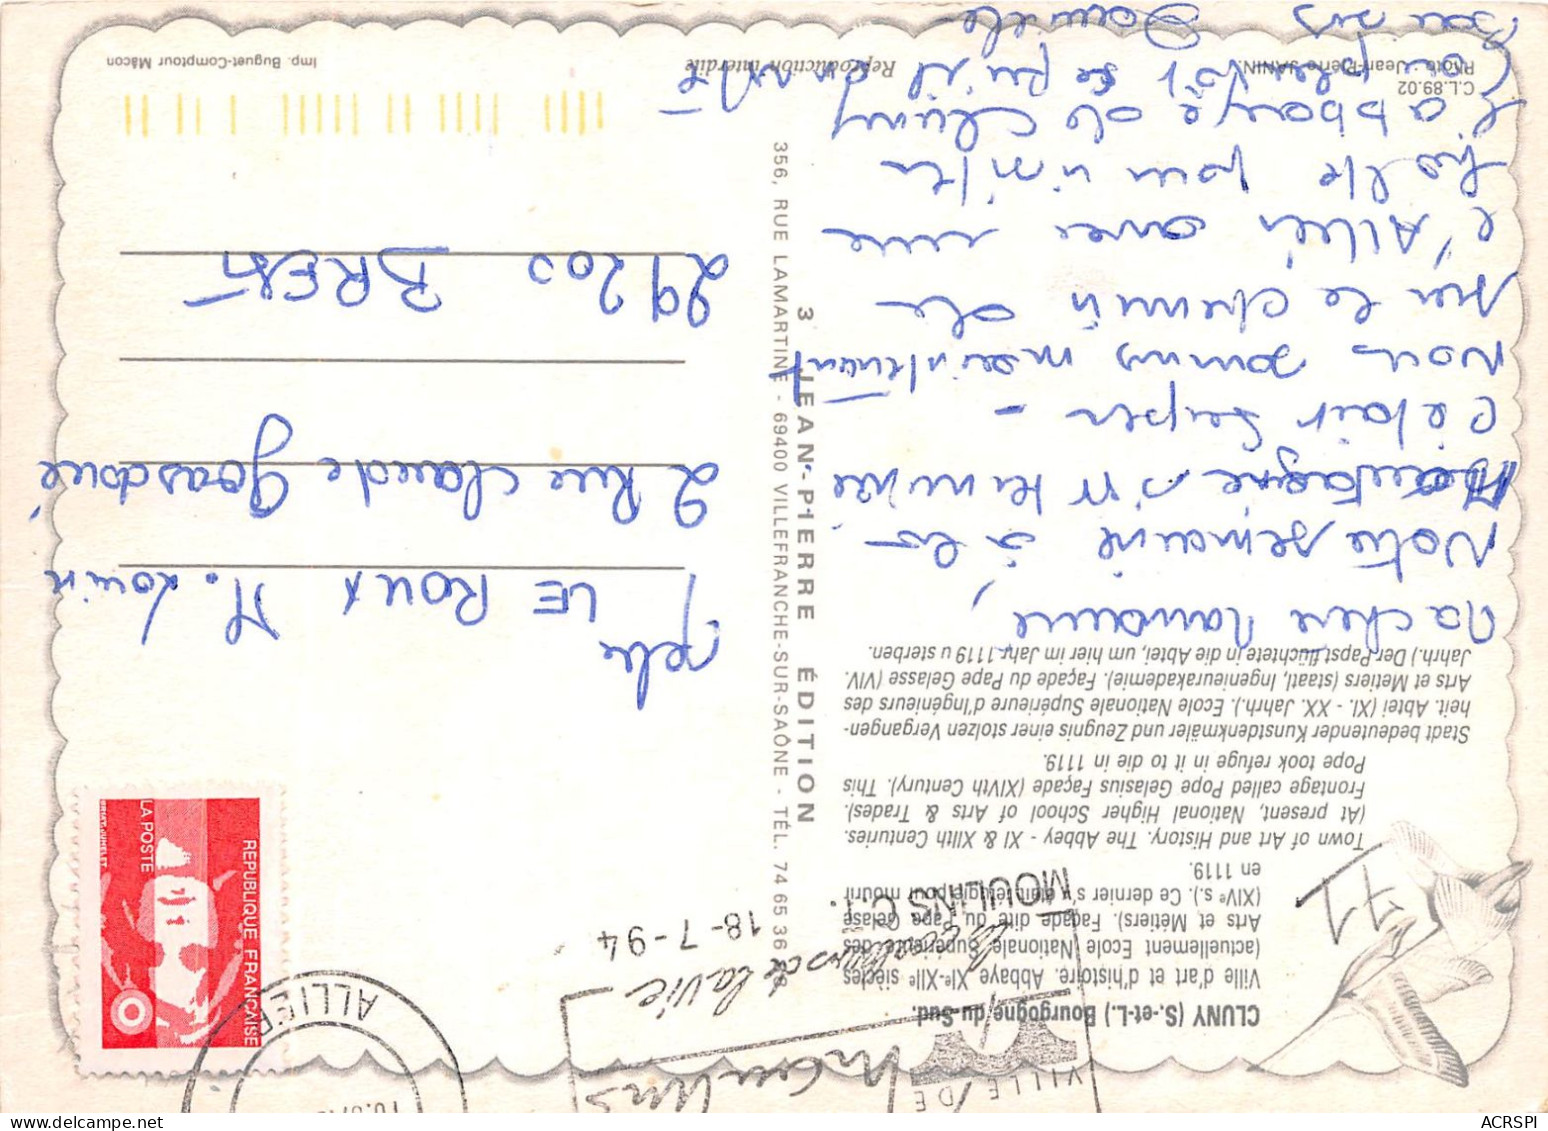 CLUNY (S.-et-L.) Bourgogne du Sud.
Ville d'art et d'histoire. Abbaye XIe-XIIe siècles
(actuellement Ecole Nationale Supérieure des
Arts et Métiers). Façade dite du Pape Gelase
(XIVe s.). Ce dernier s'y était réfugié pour mourir
en 1119.
Town of Art and History. The Abbey - XI & XIIth Centuries.
(At present, National Higher School of Arts & Trades).
Frontage called Pope Gelasius Façade (XIVth Century). This
Pope took refuge in it to die in 1119.
Stadt bedeutender Kunstdenkmäler und Zeugnis einer stolzen Vergangen-
heit. Abtei (XI. - XX. Jahrh.). Ecole Nationale Supérieure d'Ingénieurs des
Arts et Métiers (staatl, Ingenieurakademie). Façade du Pape Gelasse (VIV.
Jahrh.) Der Papst flüchtete in die Abtei, um hier im Jahr 1119 u sterben.
71
Ma chère
Notre semaine à la
Montagne s'est terminée
C'était super -
Nous sommes maintenant
sur le chemin de
l'Allier avec une
halte pour visiter
l'abbaye de Cluny
Bisous
C.L.89.02
Photo : Jean-Pierre JANIN.
Reproduction interdite
3 JEAN-PIERRE ÉDITION
356, RUE LAMARTINE - 69400 VILLEFRANCHE-SUR-SAÔNE - TÉL. 74 65 36
VILLE DE
Moulins
de la vie
MOULINS C.T.
18-7-94
ALLIER
REPUBLIQUE FRANÇAISE
LA POSTE
LE ROUX M. Louis
2 Rue Claude Goasdoué
29200 BREST
Imp. Buguet-Comptour Mâcon
ACRSPI